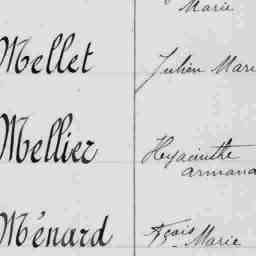 Marie
Mellet Julien Marie
Mellier Hyacinthe
armand
Ménard Fçois Marie